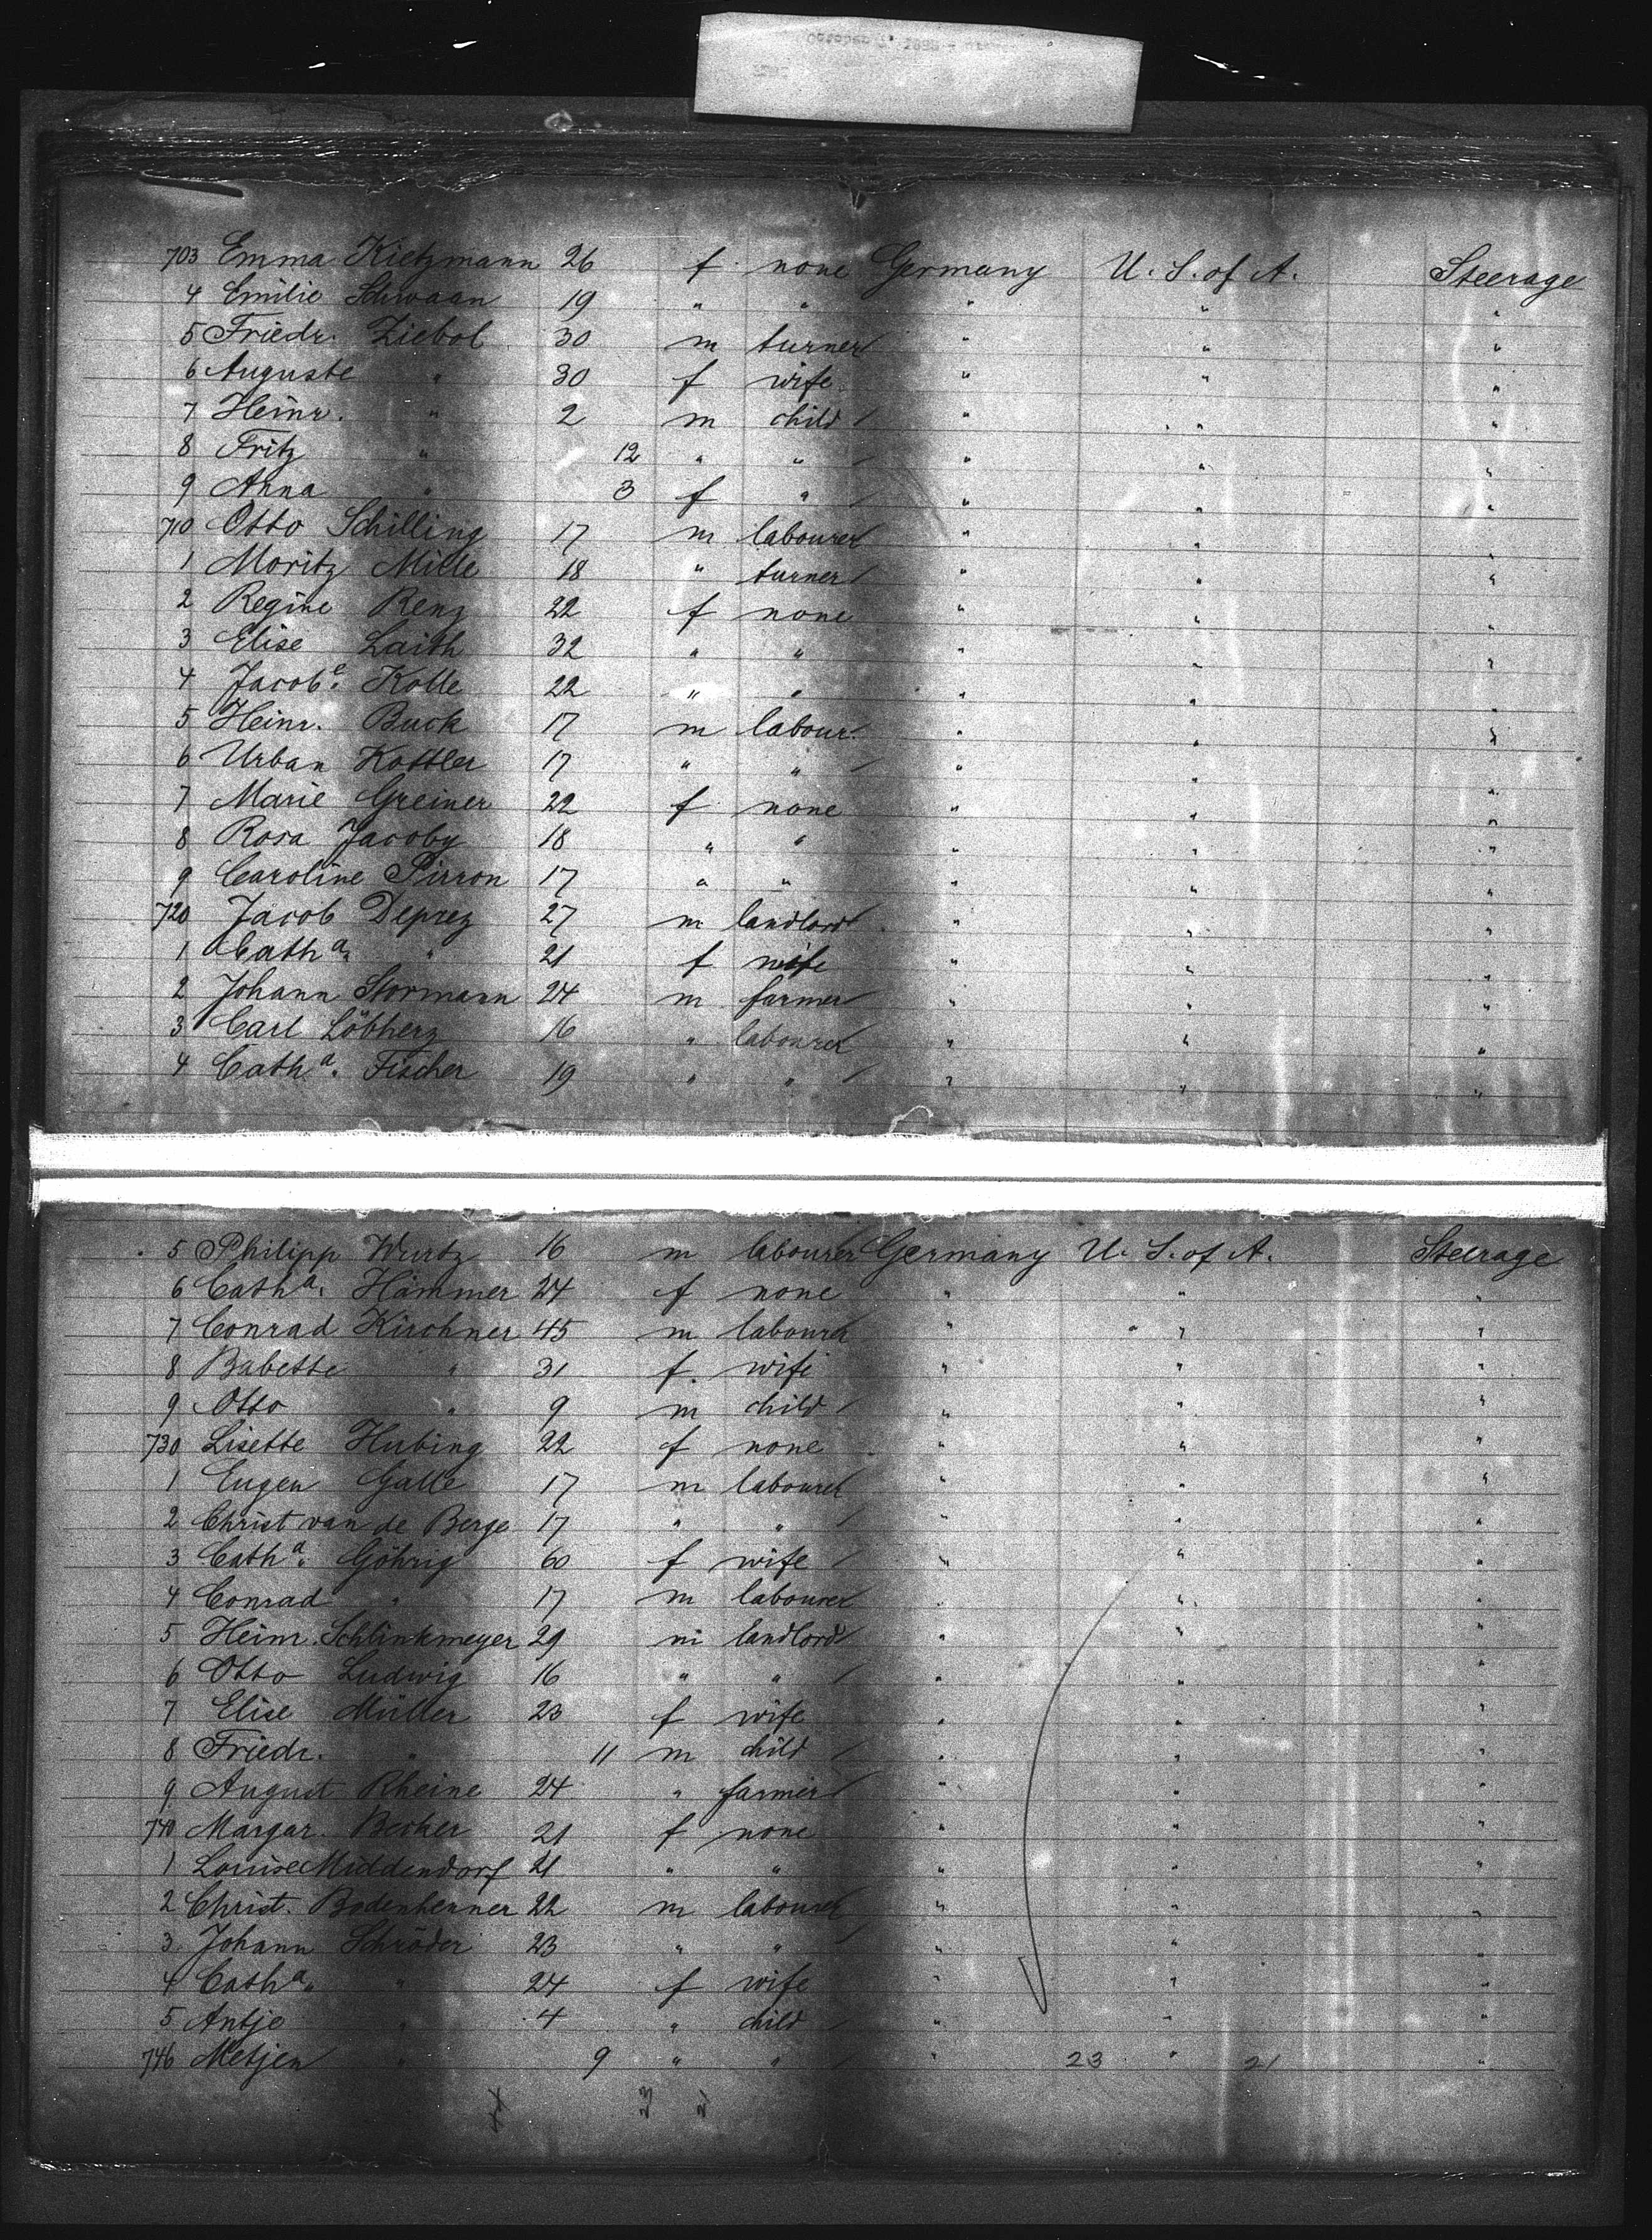 703 Emma Kietzmann 26 f none Germany U. S. of A. Steerage
4 Emilie Schwaan 19 " " " " "
5 Friedr. Ziebol 30 m turner " " "
6 Auguste " 30 f wife " " "
7 Heinr. " 2 m child " " "
8 Fritz " 12 " " " " "
9 Anna " 3 f " " " "
710 Otto Schilling 17 m labourer " " "
1 Moritz Mille 18 " turner " " "
2 Regine Renz 22 f none " " "
3 Elise Laith 32 " " " " "
4 Jacobe. Kolle 22 " " " " "
5 Heinr. Buck 17 m labour. " " "
6 Urban Kottler 17 " " " " "
7 Marie Greiner 22 f none " " "
8 Rosa Jacoby 18 " " " " "
9 Caroline Pirron 17 " " " " "
720 Jacob Deprez 27 m landlord " " "
1 Catha. " 21 f wife " " "
2 Johann Stormann 24 m farmer " " "
3 Carl Löbherz 16 " labourer " " "
4 Catha. Fischer 19 " " " " "
5 Philipp Wurtz 16 m labourer Germany U. S. of A. Steerage
6 Catha. Hammer 24 f none " " "
7 Conrad Kirchner 45 m labourer " " "
8 Babette " 31 f. wife " " "
9 Otto " 9 m child " " "
730 Lisette Hubing 22 f none " " "
1 Eugen Galle 17 m labourer " " "
2 Christ van de Berge 17 " " " " "
3 Catha. Göhrig 60 f wife " " "
4 Conrad " 17 m labourer " " "
5 Heinr. Schlinkmeyer 29 m landlord " " "
6 Otto Ludwig 16 " " " " "
7 Elise Müller 23 f wife " " "
8 Friedr. " 11 m child " " "
9 August Rheine 24 " farmer " " "
740 Margar. Becker 21 f none " " "
1 Louise Middendorf 21 " " " " "
2 Christ. Bodenhenner 22 m labourer " " "
3 Johann Schröder 23 " " " " "
4 Catha. " 24 f wife " " "
5 Antje " 4 " child " " "
746 Metjen " 9 " " " 23 " 21 "
23 21